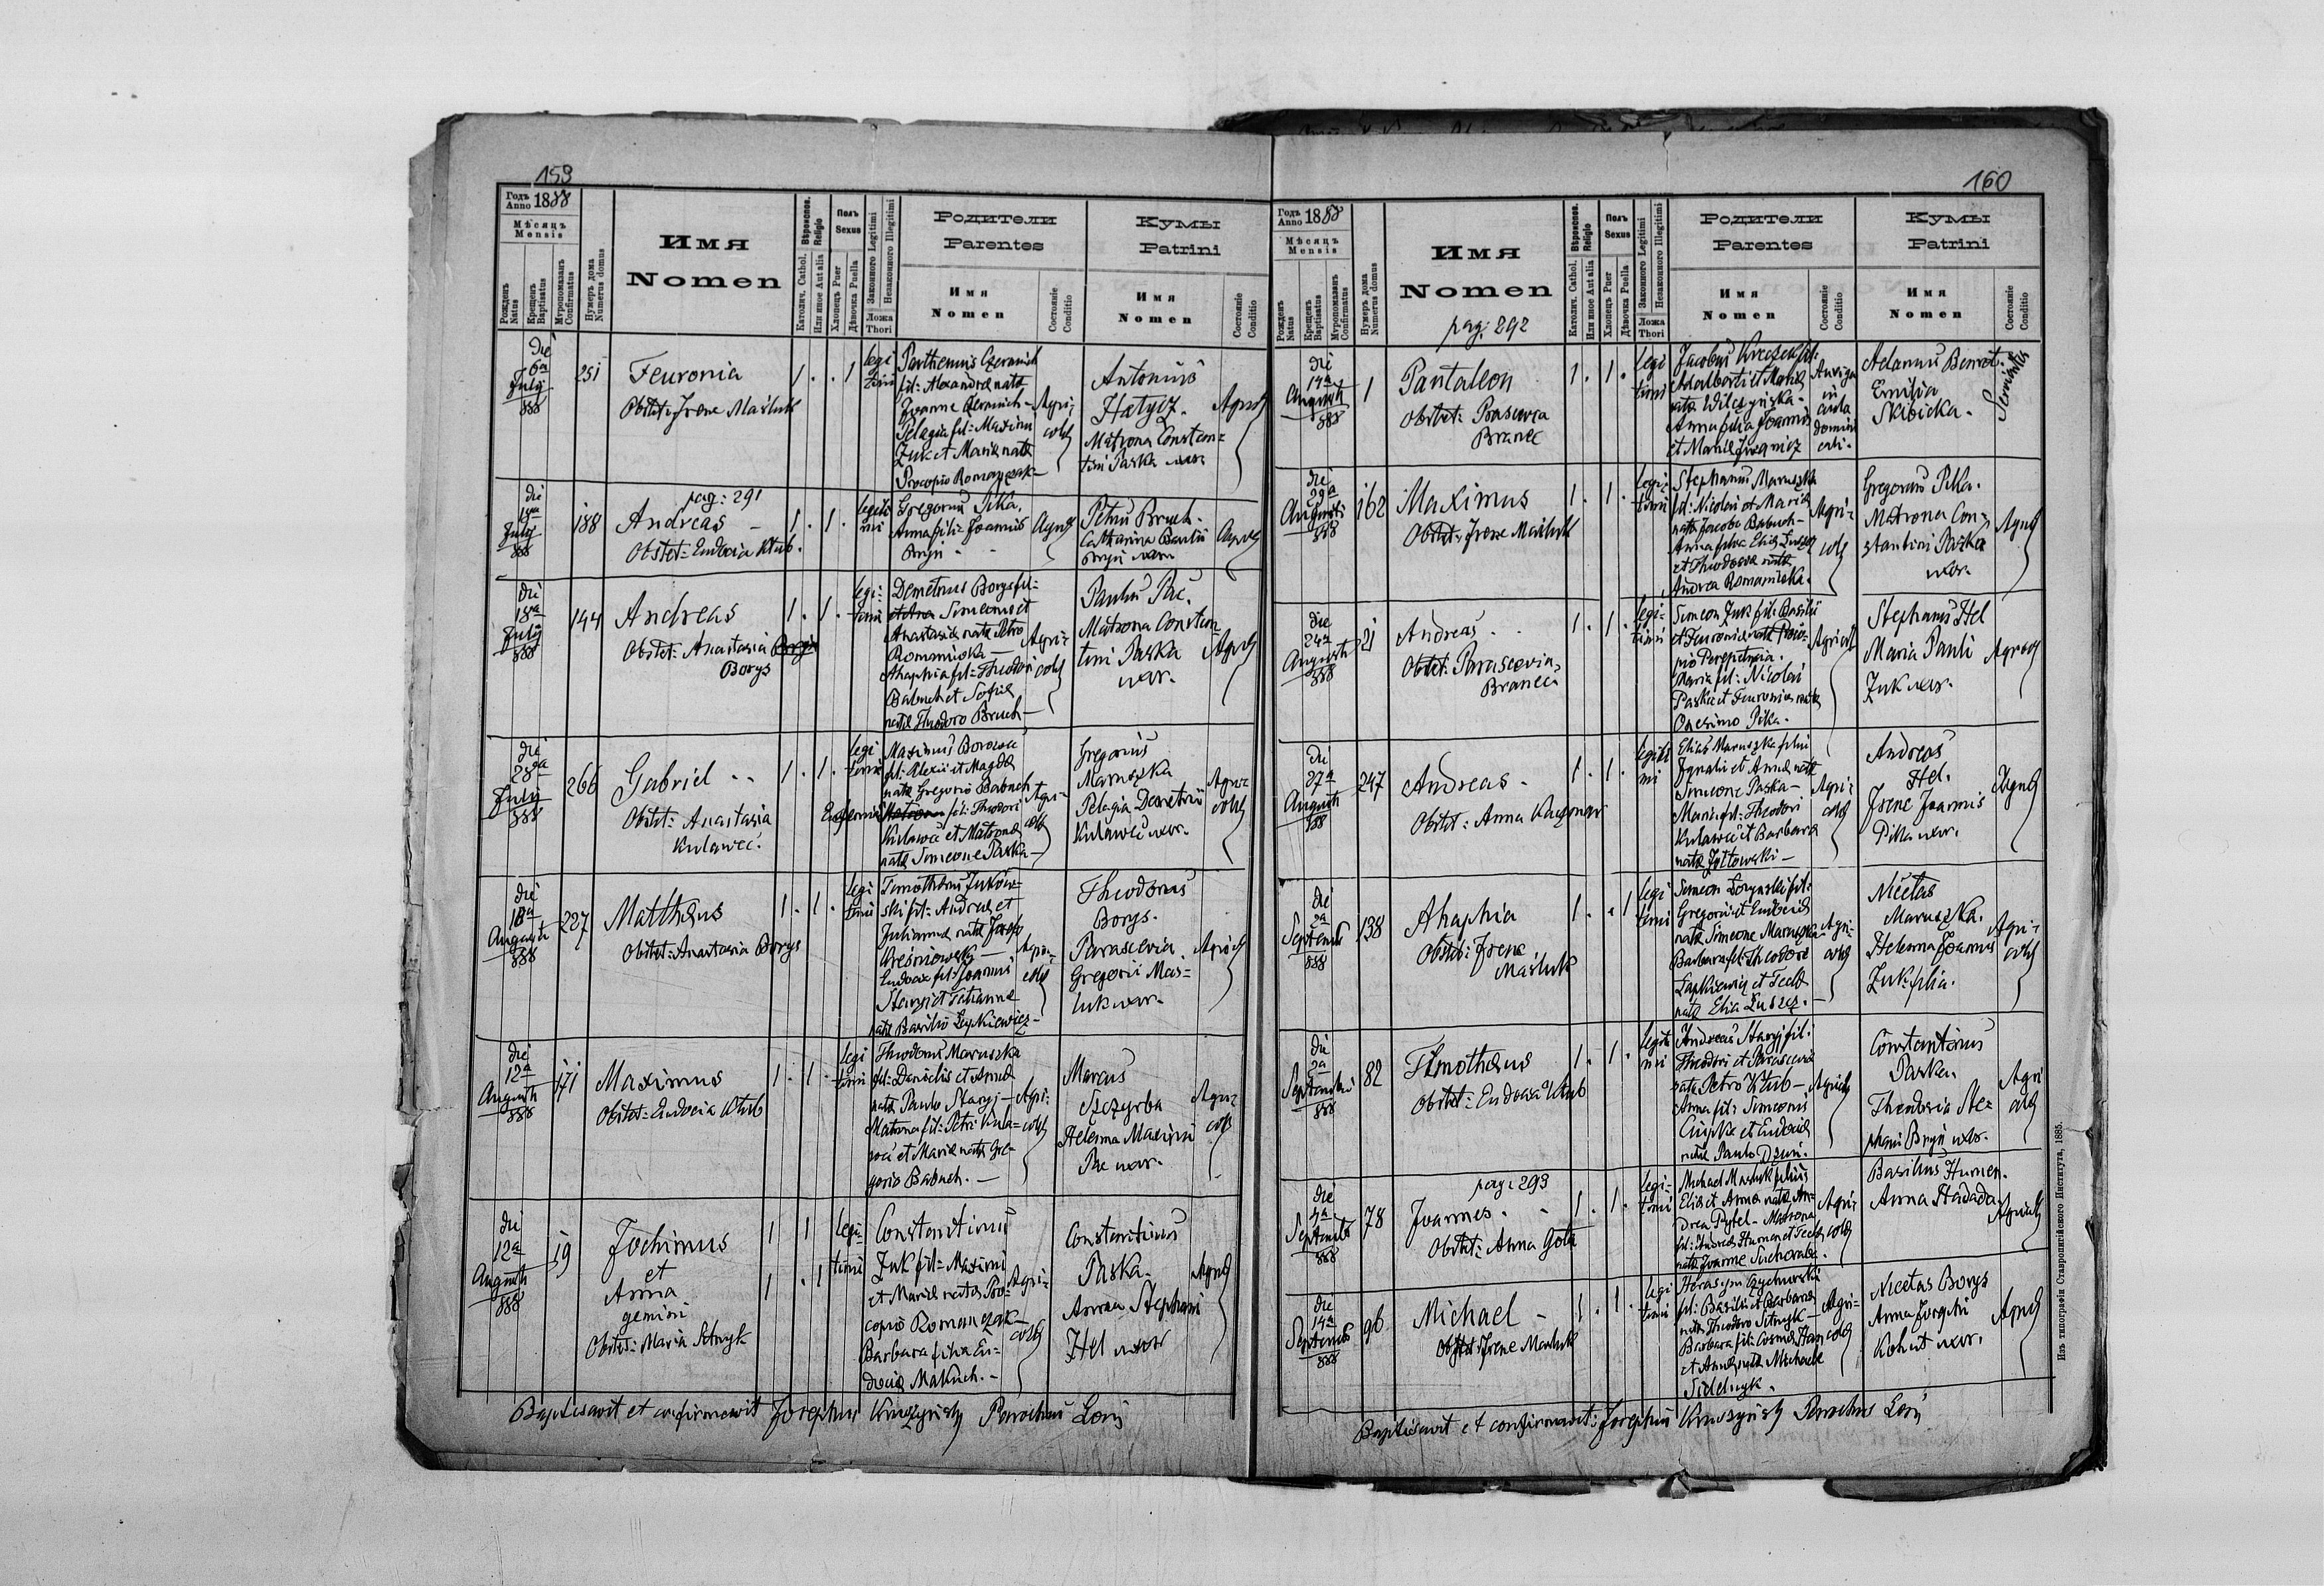 159
Годъ Anno 1888
Мѣсяцъ
Mensis
Рожденъ Natus
Крещенъ Baptisatus
Мѵропомазанъ Confirmatus
Нумеръ дома Numerus domus
Имя
Nomen
Вѣроиспов. Religio
Католич. Cathol.
Или иное Aut alia
Полъ
Sexus
Хлопецъ Puer
Дѣвочка Puella
Законного Legitimi
Незаконного Illegitimi
Ложа
Thori
Родители
Parentes
Имя
Nomen
Состояніе
Conditio
Кумы
Patrini
Имя
Nomen
Состояніе
Conditio
die
6a
July
888
251
Feuronia
Obstet: Irene Maśluk
1 . . 1
legi
timi
Parthenius Czerniuch
fil: Alexandri et nata
Joanne Czerniuch -
Pelagia fil: Maximi
Żuk et Mariæ natæ
Procopio Romanczak -
Agri-
colæ
Antonius
Hatycz.
Matrona Constan-
tini Paska uxor
Agricolæ
die
14a
July
888
188
pag: 291
Andreas -
Obstet: Eudocia Kłub.
1 . 1 .
legiti
mi
Gregorius Pika,
Anna filia Joannis
Bryń -
Agricolæ
Petrus Bruch.
Catharina Basilii
Bryń uxor
Agricolæ
die
18a
July
888
144
Andreas
Obstet: Anastasia
Borys
1 . 1 .
legi-
timi
Demetrius Borys fil=
Simeonis et
Anastasiæ natæ Petro
Romaniska -
Ahaphia fil: Theodori
Babuch et Sofiæ
natæ Theodoro Bruch -
Agri-
colæ
Paulus Pac.
Matrona Constan-
tini Paska
uxor.
Agricolæ
die
28a
July
888
266
Gabriel
Obstet: Anastasia
Kulawec.
1 . 1 .
legi
timi
Maximus Borowec
fil: Alexii et Magdæ
natæ Gregorio Babuch
Eufemia fil: Theodori
Kulawec et Matronæ
natæ Simeone Paska -
Agri-
colæ
Gregorius
Maruszka
Pelagia Demetrii
Kulawec uxor.
Agri-
colæ
die
10a
Augusti
888
227
Matthæus
Obstet: Anastasia Borys
1 . 1 .
legi
timi
Timotheus Żukow-
ski fil: Andreæ et
Julianna natæ Josepho
Wreśniowski -
Eudocia fil: Joannis
Staryj et Tatiannæ
natæ Basilio Łapkiewicz -
Agri-
colæ
Theodorus
Borys.
Parascevia
Gregorii Maś-
luk uxor.
Agricolæ
die
12a
Augusti
888
171
Maximus
Obstet: Eudocia Kłub
1 . 1 .
legi
timi
Theodorus Maruszka
fil: Danielis et Annæ
natæ Paulo Staryj -
Matrona fil: Petri Kula-
wec et Mariæ natæ Gre-
gorio Babuch. -
Agri-
colæ
Marcus
Szczyrba
Helena Maximi
Pac uxor.
Agri-
colæ
die
12a
Augusti
888
19
Jochimus
et
Anna
gemini
Obstet: Maria Sitnyk
1 1
1 . 1
legi-
timi
Constantinus
Żuk fil: Maximi
et Mariæ natæ Pro-
copio Romanczak -
Barbara filia Eu-
dociæ Makuch. -
Agri-
colæ
Constantinus
Paska.
Anna Stephani
Hel uxor
Agricolæ
Baptisavit et confirmavit Josephus Kruszyński Parochus Loci
160
Годъ Anno 1888
Мѣсяцъ
Mensis
Рожденъ Natus
Крещенъ Baptisatus
Мѵропомазанъ Confirmatus
Нумеръ дома Numerus domus
Имя
Nomen
pag: 292
Вѣроиспов. Religio
Католич. Cathol.
Или иное Aut alia
Полъ
Sexus
Хлопецъ Puer
Дѣвочка Puella
Законного Legitimi
Незаконного Illegitimi
Ложа
Thori
Родители
Parentes
Имя
Nomen
Состояніе
Conditio
Кумы
Patrini
Имя
Nomen
Состояніе
Conditio
die
14a
Augusti
888
1
Pantaleon
Obstet: Parascevia
Branec
1 . 1 .
legi
timi
Jacobus Kreczek fil:
Adalberti et Mariæ
natæ Wilczyńska -
Anna filia Joannis
et Mariæ
Auriga
in
aula
domini
cali -
Adamus
Emilia
Skibicka.
die
29a
Augusti
888
162
Maximus
Obstet: Irene Maśluk
1 . 1 .
legi-
timi
Stephanus Maruszka
fil: Nicolai et Mariæ
natæ Jacobo Babuch -
Anna filia Eliæ
et Theodora natæ
Andrea Romaniska.
Agri-
colæ
Gregorius Pika.
Matrona Con-
stantini Paska
uxor.
Agricolæ
die
24a
Augusti
888
21
Andreas.
Obstet: Parascevia
Branec
1 . 1 .
legi-
timi
Simeon Żuk fil: Basilii
et Feuroniæ natæ Proco-
pio
Maria fil: Nicolai
Paska et Feuroniæ natæ
Onesimo Pika.
Agricolæ
Stephanus Hel
Maria Pauli
Żuk uxor.
Agricolæ
die
27a
Augusti
888
247
Andreas -
Obstet: Anna Kaczmar
1 . 1 .
legiti
mi
Elias Maruszka filius
Ignatii et Annæ natæ
Simeone Paska -
Maria fil: Theodori
Kulawec et Barbaræ
natæ Żółtowski -
Agri-
colæ
Andreas
Hel.
Irene Joannis
Pika uxor.
Agricolæ
die
2a
Septembris
888
138
Ahaphia
Obstet: Irene
Maśluk
1 . . 1
legi
timi
Simeon Łozynski fil:
Gregorii et Eudociæ
natæ Simeone Maruszka -
Barbara fil: Theodori
Łapkiewicz et Teclæ
natæ Elia
Agri-
colæ
Nicetas
Maruszka.
Helena Joannis
Żuk filia.
Agri-
colæ
die
2a
Septembris
888
82
Timothæus
Obstet: Eudocia Kłub
1 . 1 .
legiti
mi
Andreas Staryj fil:
Theodori et Parasceviæ
natæ Petro Kłub -
Anna fil: Simeonis
et Eudociæ
natæ Paulo
Agricolæ
Constantinus
Paska.
Theodosia Ste-
phani Bryń uxor.
Agri
colæ
die
4a
Septembris
888
78
pag: 293
Joannes.
Obstet: Anna Gota
1 . 1 .
legi-
timi
Michael Maśluk filius
Eliæ et Annæ natæ An-
drea Pytel - Matrona
fil: Andreæ Humen et Teclæ
natæ Joanne Suchorab.
Agri-
colæ
Basilius Humen.
Anna Hadada
Agricolæ
die
14a
Septembris
888
96
Michael -
Obstet: Irene Maśluk
1 . 1 .
legi
timi
Herasym Czychurski
fil: Basilii et Barbaræ
natæ Theodoro Sitnyk -
Barbara fil: Cosmæ
et Annæ natæ Michaele
Sidelnyk.
Agri-
colæ
Nicetas Borys
Anna
Kohut uxor.
Agricolæ
Baptisavit et confirmavit: Josephus Kruszyński Parochus Loci
Изъ типографіи Ставропигійского Института, 1885.